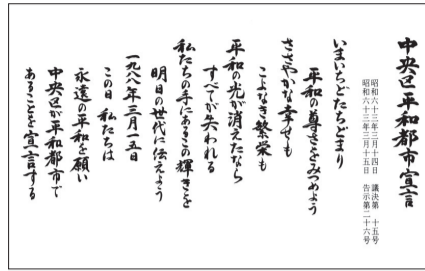 中央区平和都市宣言
昭和六十三年三月十四日 議決第十五号
昭和六十三年三月十五日 告示第二十六号
いまいちどたちどまり
平和の尊さをみつめよう
ささやかな幸せも
こよなき繁栄も
平和の光が消えたなら
すべてが失われる
私たちの手にあるこの輝きを
明日の世代に伝えよう
一九八八年三月一五日
この日 私たちは
永遠の平和を願い
中央区が平和都市で
あることを宣言する